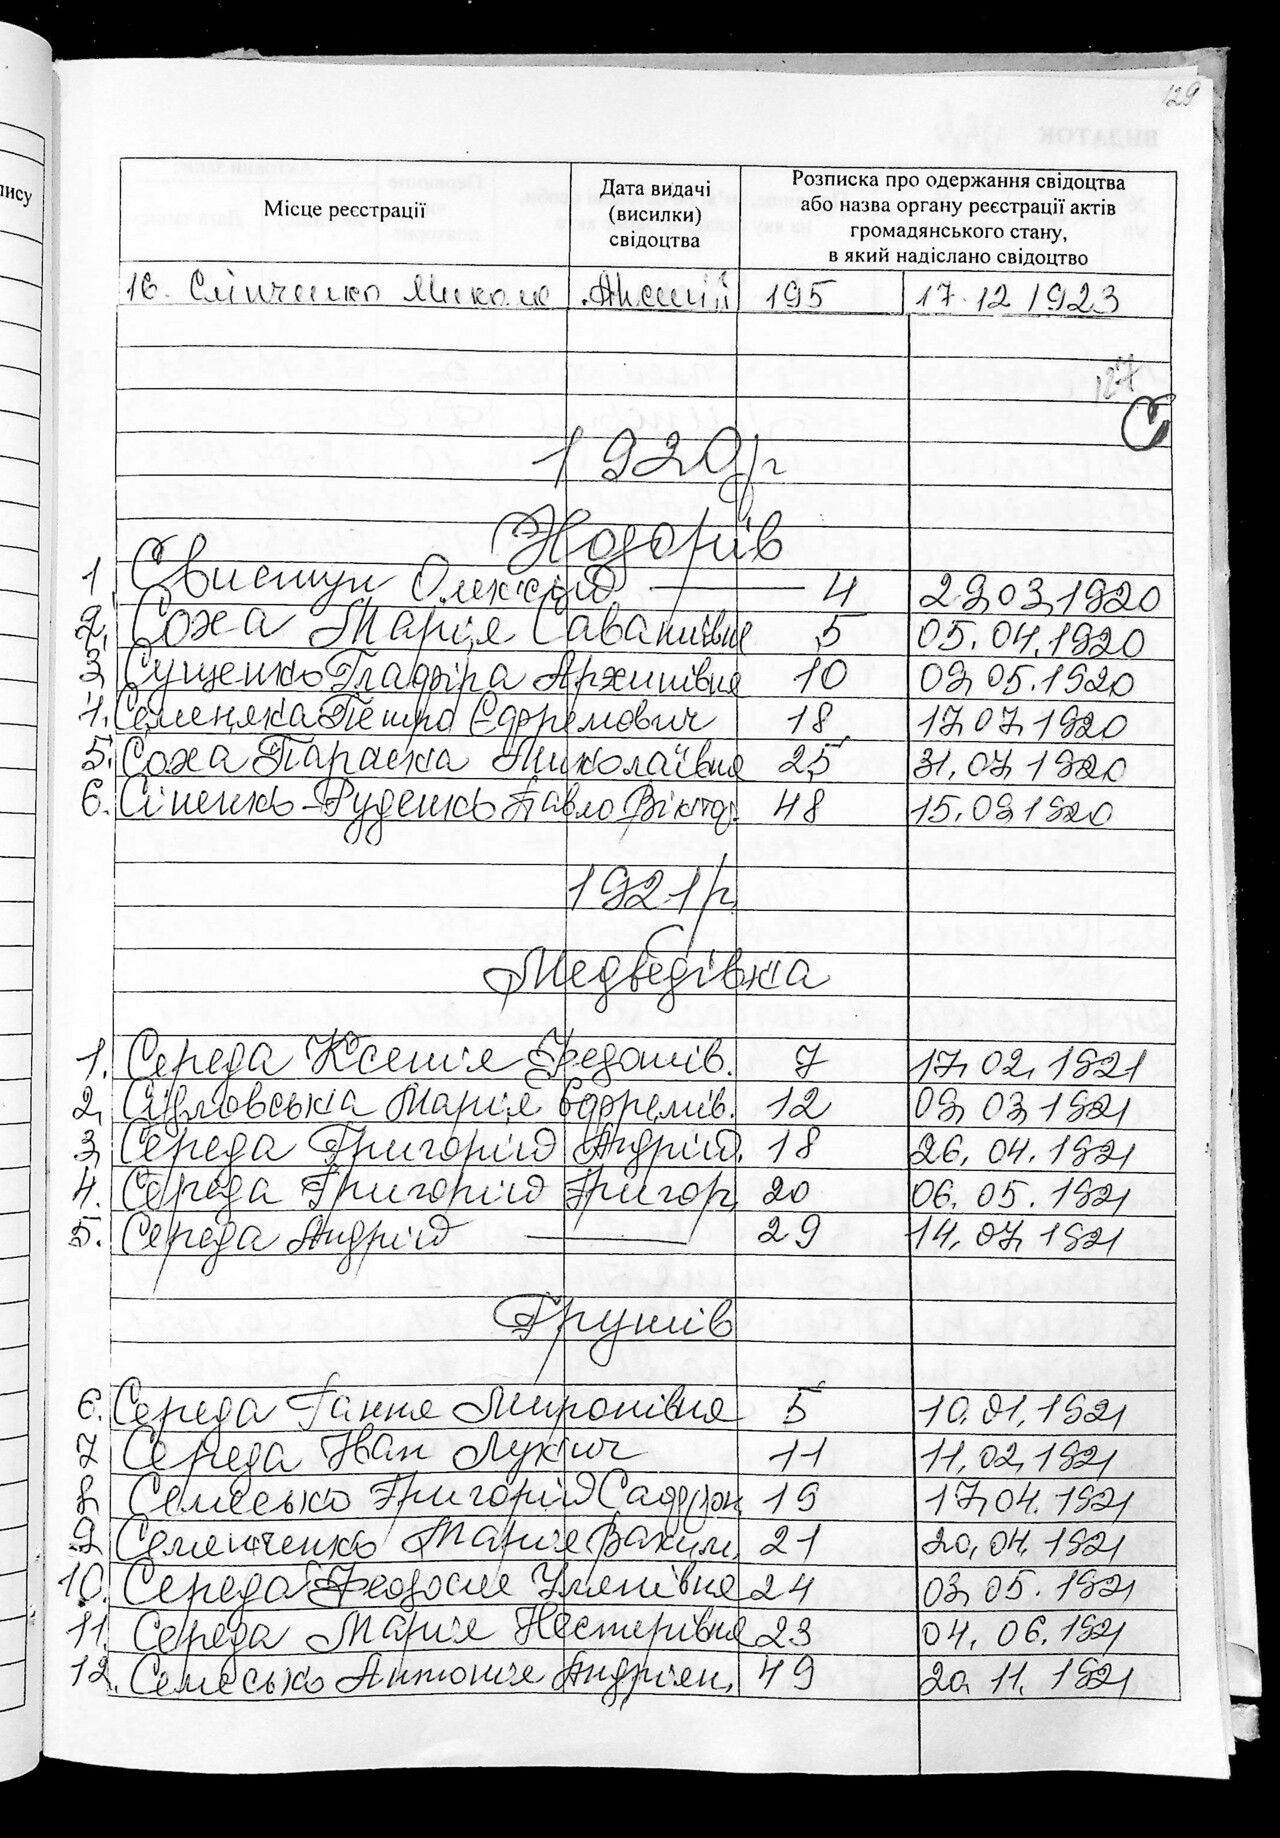 129
пису
Місце реєстрації
Дата видачі
(висилки)
свідоцтва
Розписка про одержання свідоцтва
або назва органу реєстрації актів
громадянського стану,
в який надіслано свідоцтво
16. Слінченко Микола 195 17.12.1923
127
С
1920 р
Ходорів
1 Свистун Олексій 4 29.03.1920
2. Соха Марія 5 05.04.1920
3 Сущенко Глафіра Архипівна 10 09.05.1920
4. Семеняка Петро Єфремович 18 17.07.1920
5. Соха Параска Миколаївна 25 31.07.1920
6. Сіненко-Руденко Павло Віктор. 48 15.09.1920
1921 р.
Медведівка
1. Середа Ксенія Федотів. 7 17.02.1921
2. Марія Єфремів. 12 09.03.1921
3 Середа Григорій Андрій. 18 26.04.1921
4. Середа Григорій Григор. 20 06.05.1921
5. Середа Андрій 29 14.07.1921
Грушів
6. Середа Ганна Миронівна 5 10.01.1921
7 Середа Іван Лукич 11 11.02.1921
8 Семесько Григорій Сафрон. 19 17.04.1921
9 Семенченко Марія 21 20.04.1921
10. Середа Феодосія Улянівна 24 03.05.1921
11. Середа Марія Нестерівна 23 04.06.1921
12. Семесько Антоніна Андріян. 49 20.11.1921